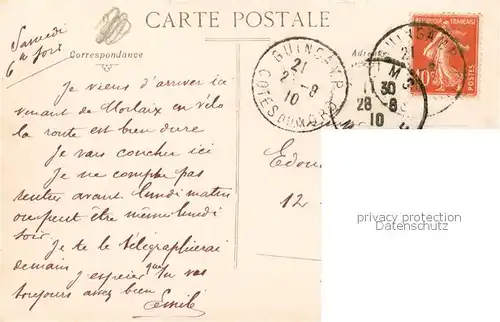 CARTE POSTALE
Samedi
6h soir
Correspondance
Adresse
GUINGAMP
21
28-8
10
COTES DU NORD
GUINGAMP
21
RÉPUBLIQUE FRANÇAISE
10
POSTES
M 3
30
28 8
10
Je viens d'arriver ici
venant de Morlaix en vélo
la route est bien dure
Je vais coucher ici
Je ne compte pas
rentrer avant lundi matin
ou peut être même lundi
soir
Je te le télégraphierai
demain j'espère que tu vas
toujours assez bien
Emile
Edou
12 -
privacy protection
Datenschutz